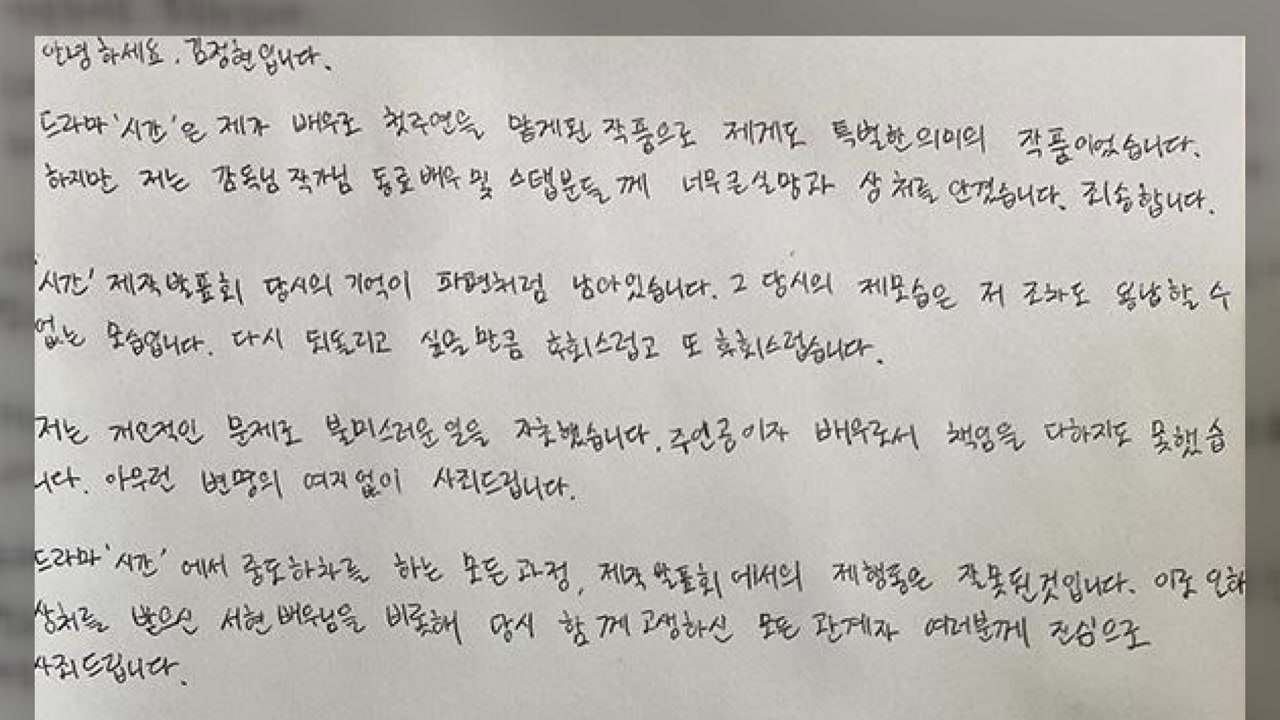 안녕하세요. 김정현입니다.
드라마 '시간'은 제가 배우로 첫주연을 맡게된 작품으로 제게도 특별한 의미의 작품이었습니다.
하지만 저는 감독님 작가님 동료배우 및 스탭분들께 너무 큰 실망과 상처를 안겼습니다. 죄송합니다.
'시간' 제작발표회 당시의 기억이 파편처럼 남아있습니다. 그 당시의 제모습은 저 조차도 용납할 수
없는 모습입니다. 다시 되돌리고 싶을만큼 후회스럽고 또 후회스럽습니다.
저는 개인적인 문제로 불미스러운 일을 자초했습니다. 주인공이자 배우로서 책임을 다하지도 못했습
니다. 아무런 변명의 여지없이 사죄드립니다.
드라마 '시간'에서 중도하차를 하는 모든 과정, 제작발표회에서의 제행동은 잘못된것입니다. 이로 인해
상처를 받으신 서현 배우님을 비롯해 당시 함께 고생하신 모든 관계자 여러분께 진심으로
사죄드립니다.